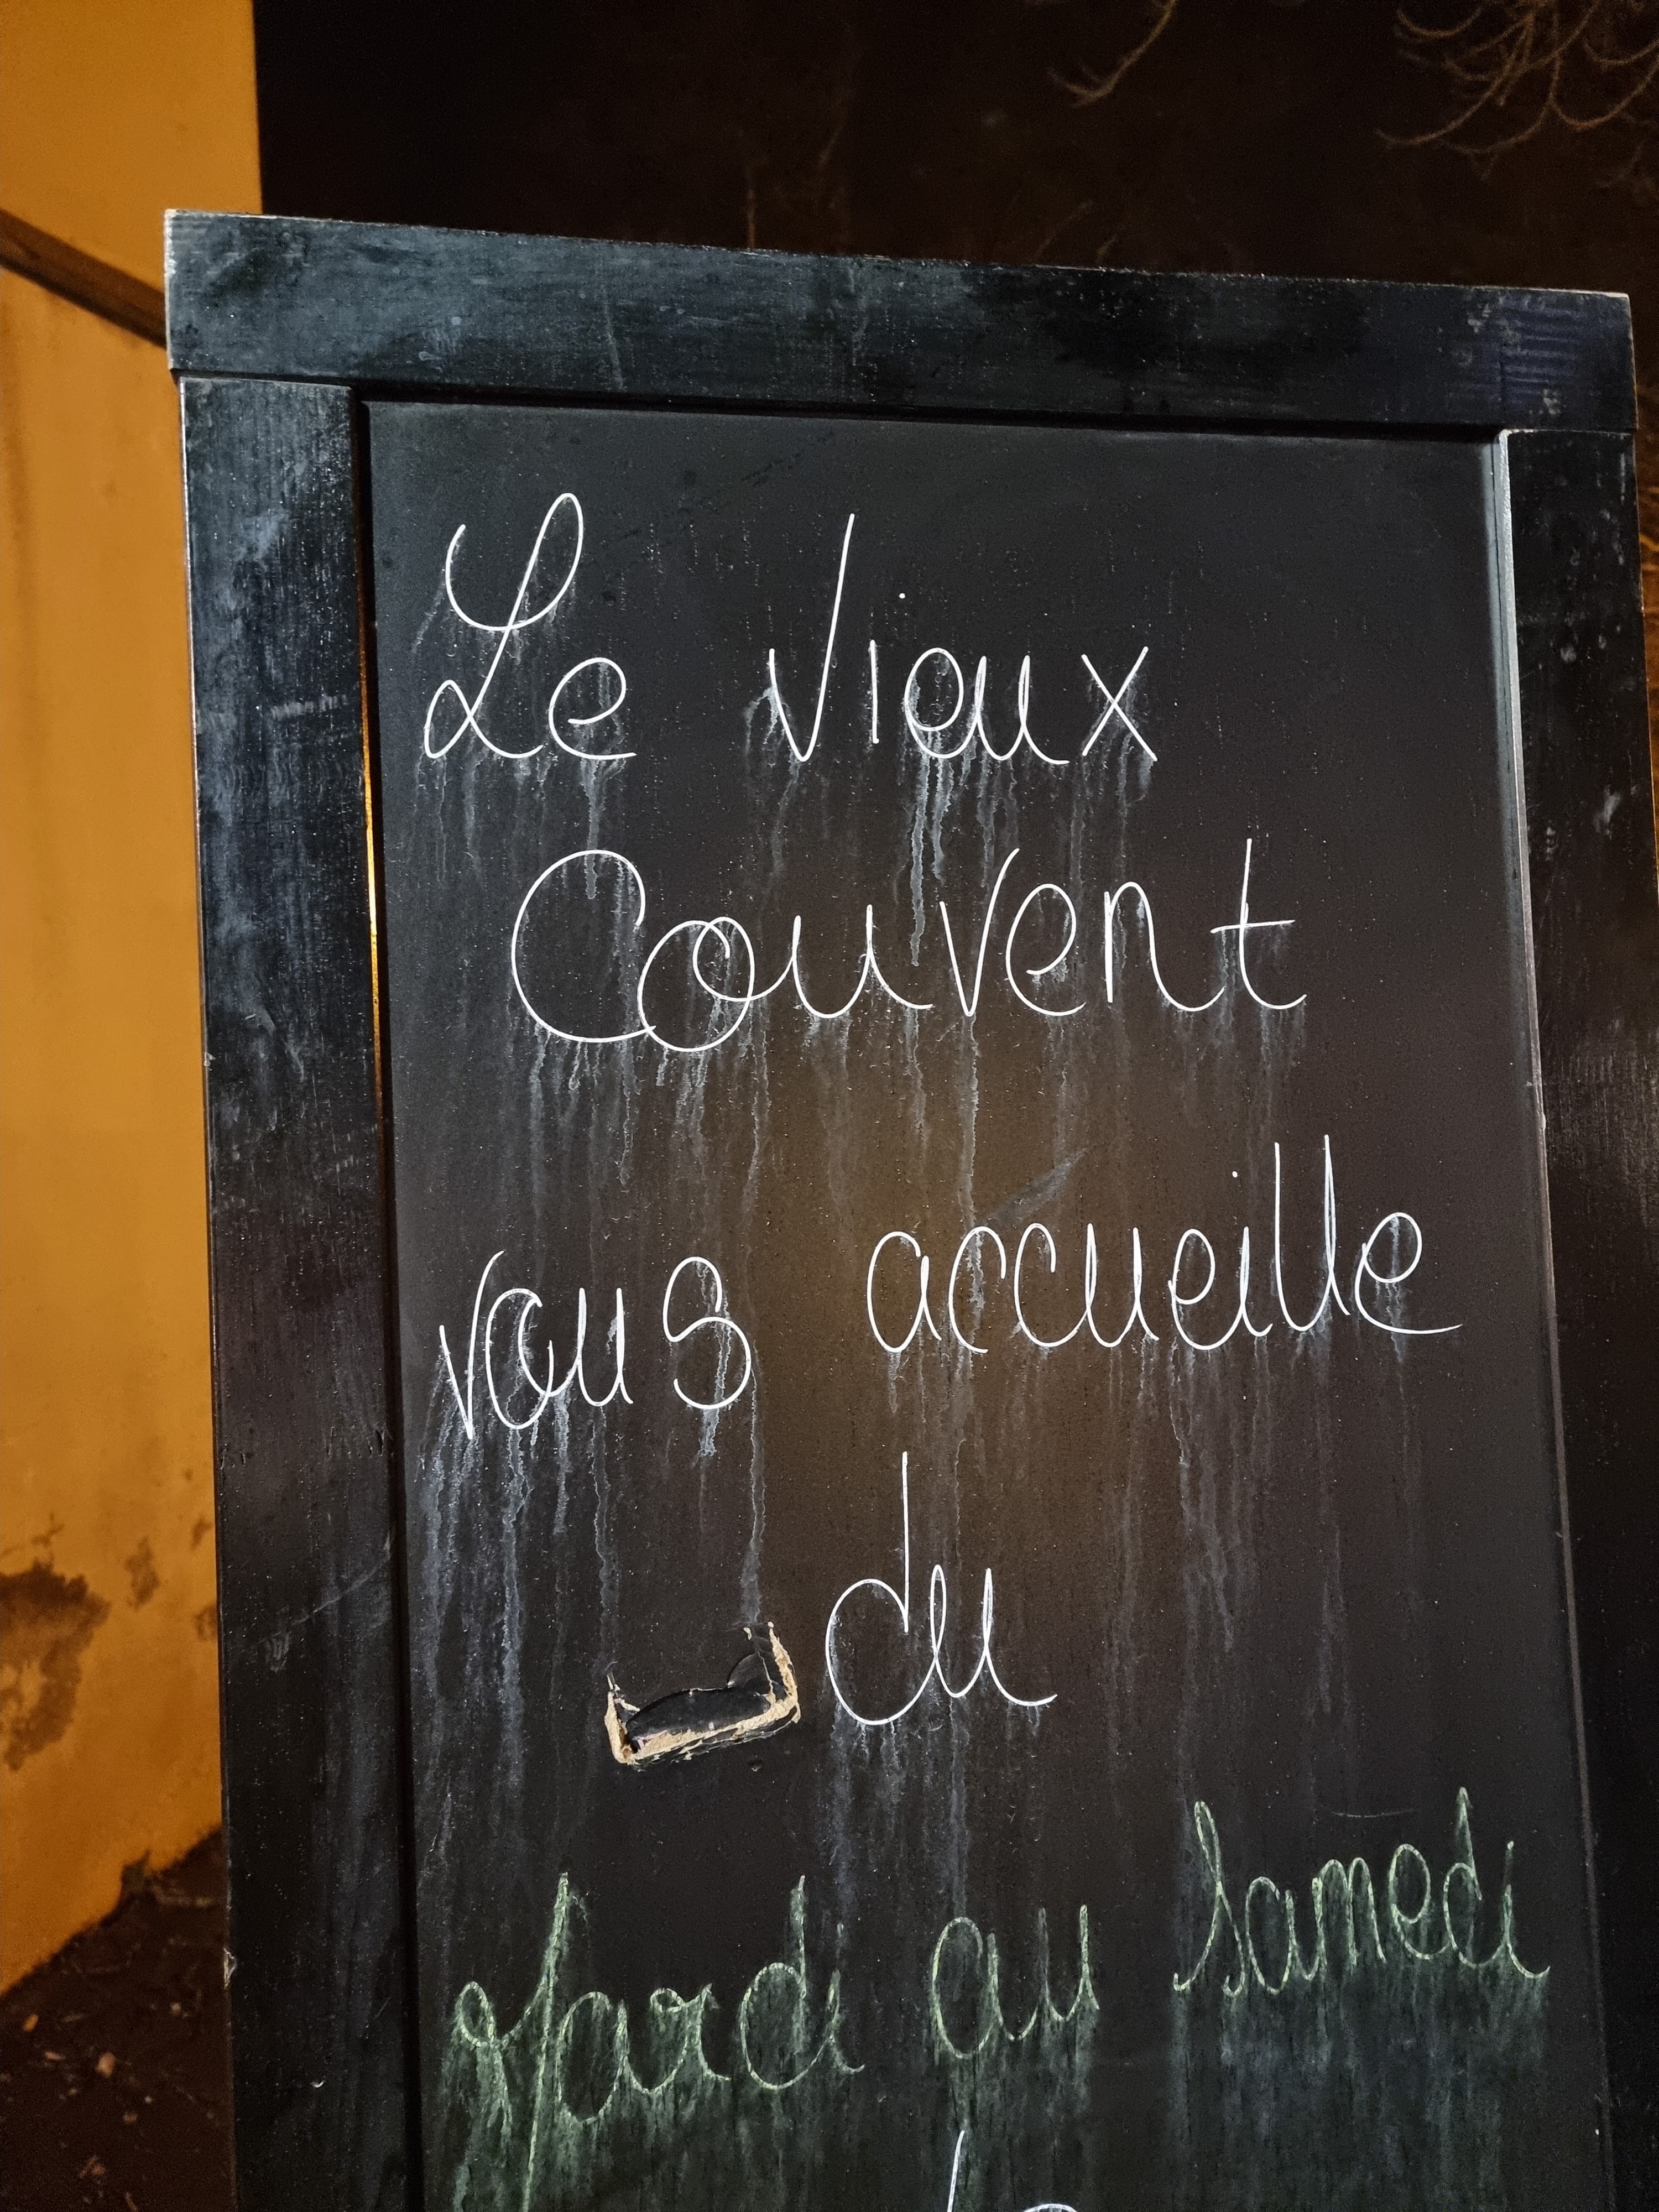 Le Vieux
Couvent
vous accueille
du
Mardi au Samedi